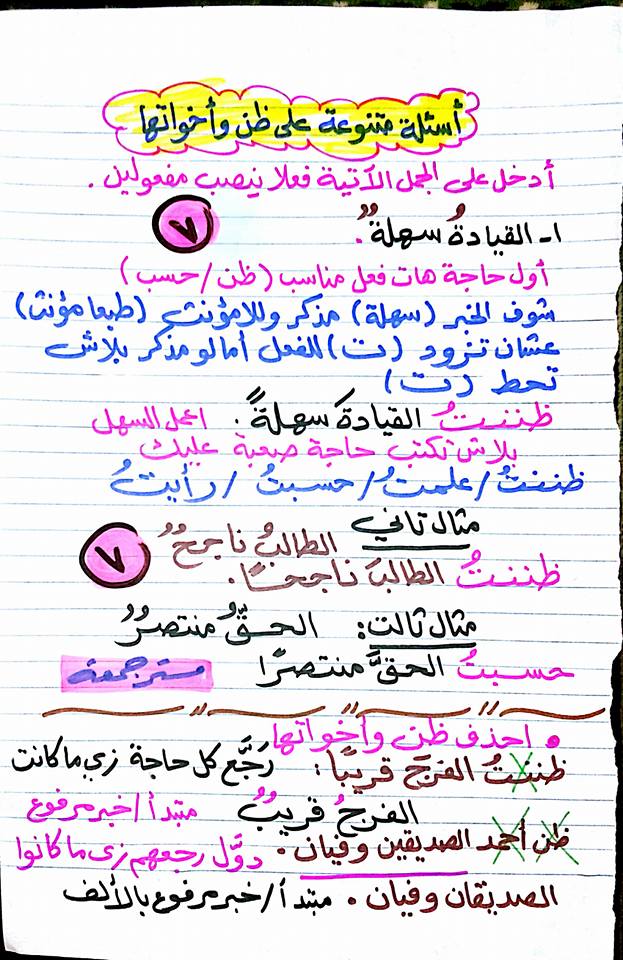 أسئلة متنوعة على ظن وأخواتها
أدخل على الجمل الآتية فعلا ينصب مفعولين .
١- القيادةُ سهلةٌ . ٧
أول حاجة هات فعل مناسب (ظن/حسب)
شوف الخبر (سهلة) مذكر وللا مؤنث (طبعا مؤنث)
عشان تزود (ت) للفعل أما لو مذكر بلاش
تحط (ت)
ظننتُ القيادةَ سهلةً . اعمل السهل
بلاش تكتب حاجة صعبة عليك
ظننتُ / علمتُ / حسبتُ / رأيتُ
مثال تاني الطالبُ ناجحٌ
ظننتُ الطالبَ ناجحًا . ٧
مثال ثالث : الحقُّ منتصرٌ
حسبتُ الحقَّ منتصرًا مستر جمعة
• احذف ظن وأخواتها
ظننتُ الفرجَ قريبًا : رَجَّع كل حاجة زي ما كانت
الفرجُ قريبٌ مبتدأ/خبر مرفوع
ظن أحمد الصديقين وفيان . دوَّل رجعهم زى ما كانوا
الصديقان وفيان . مبتدأ/خبر مرفوع بالألف